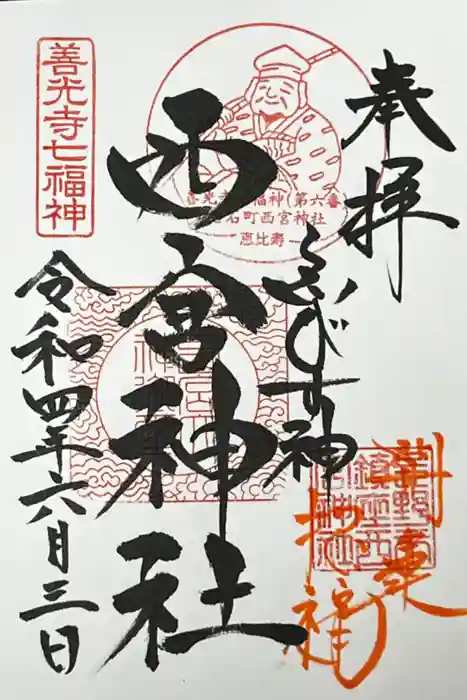 奉拝
ゑびす神
西宮神社
令和四年六月三日
善光寺七福神
善光寺七福神(第六番)
岩石町西宮神社
恵比寿
招福